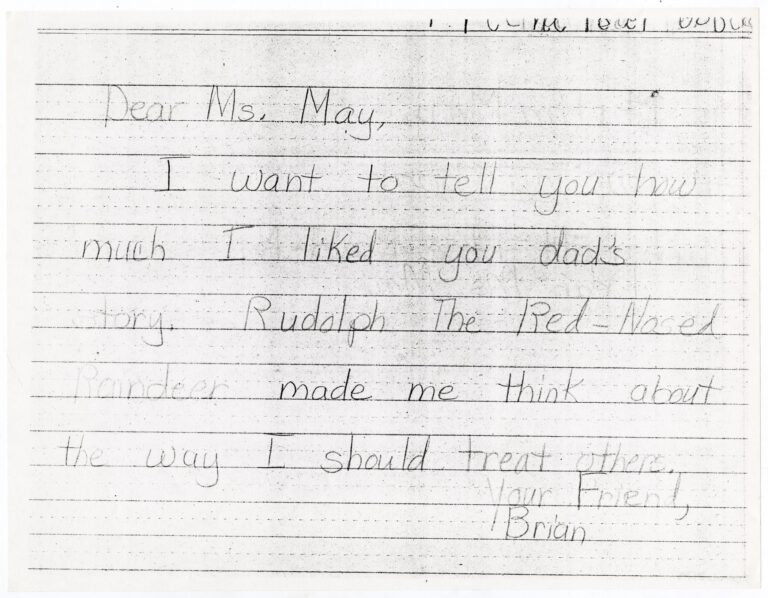 Dear Ms. May,
I want to tell you how
much I liked you dad's
story. Rudolph The Red-Nosed
Raindeer made me think about
the way I should treat others.
Your Friend,
Brian